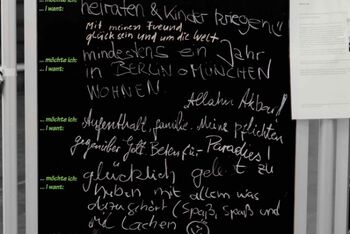 heiraten & Kinder kriegen!
Mit meinen Freund
glücklich sein und um die Welt
... möchte ich:
... I want:
mindestens ein Jahr
in BERLIN o. MÜNCHEN
... möchte ich:
... I want:
WOHNEN.
Allahu Akbar!!
... möchte ich:
... I want:
Aufenthalt, familie. Meine pflichten
gegenüber Gott Paradies!
... möchte ich:
... I want:
glücklich gelebt zu
haben mit allem was
dazu gehört (Spaß, Spaß und
lachen